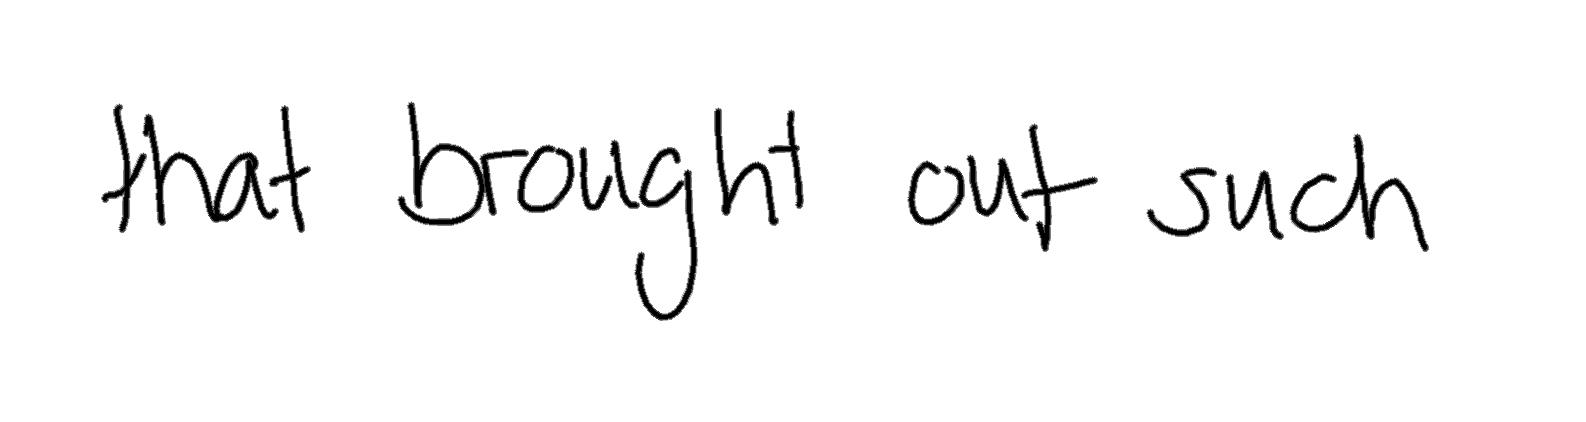 that brought out such